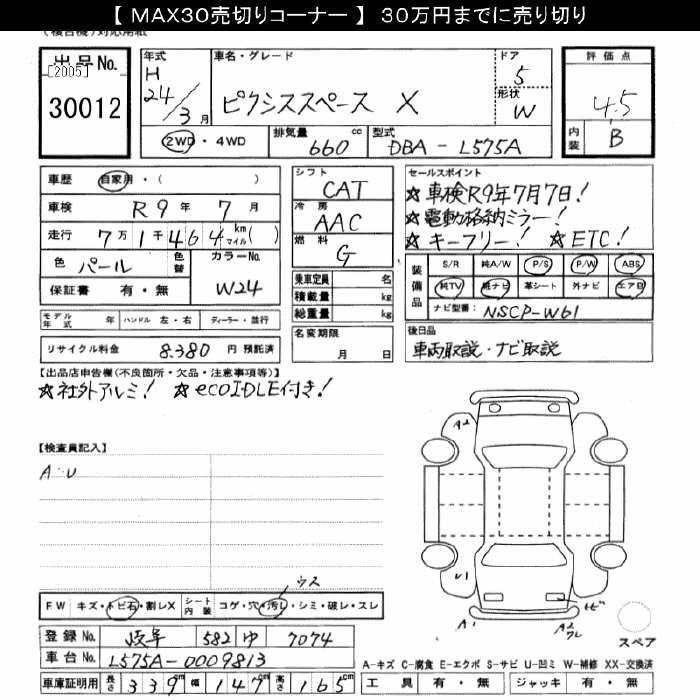 【 MAX30売切りコーナー 】 30万円までに売り切り
(複合機)対応用紙
出品No.
[2005]
30012
年式
H 24/3月
車名・グレード
ピクシススペース X
ドア
5
形状
W
評価点
4.5
内装
B
2WD・4WD
排気量
660 cc
型式
DBA-L575A
車歴 自家用・( )
車検 R9年7月
走行 7万1千464 km マイル( )
色 パール
色替
カラーNo. W24
保証書 有・無
モデル年式 年 ハンドル 左・右 ディーラー・並行
リサイクル料金 8380 円 預託済
シフト
CAT
冷房
AAC
燃料
G
乗車定員 名
積載量 kg
総重量 kg
名変期限
月 日
セールスポイント
☆車検R9年7月7日!
☆電動格納ミラー!
☆キーフリー! ☆ETC!
装備品
S/R 純A/W P/S P/W ABS
純TV 純ナビ 革シート 外ナビ エアB
ナビ型番: NSCP-W61
後日品
車両取説・ナビ取説
【出品店申告欄(不良箇所・欠品・注意事項等)】
☆社外アルミ! ☆ecoIDLE付き!
【検査員記入】
A・U
A2
U1
A1
トビ
A2
フレ
スペア
ウス
FW キズ・トビ石・割レX シート内装 コゲ・穴・汚レ・シミ・破レ・スレ
登録No. 岐阜 582 ゆ 7074
車台No. L575A-0009813
車庫証明用 長さ 339 cm 幅 147 cm 高さ 165 cm
A-キズ C-腐食 E-エクボ S-サビ U-凹ミ W-補修 XX-交換済
工具 有・無 ジャッキ 有・無